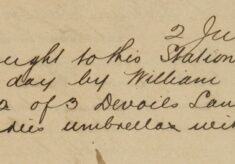 2 Ju
ught to this Station
day by William
2 of 3 Devoils Lan
dies umbrella with